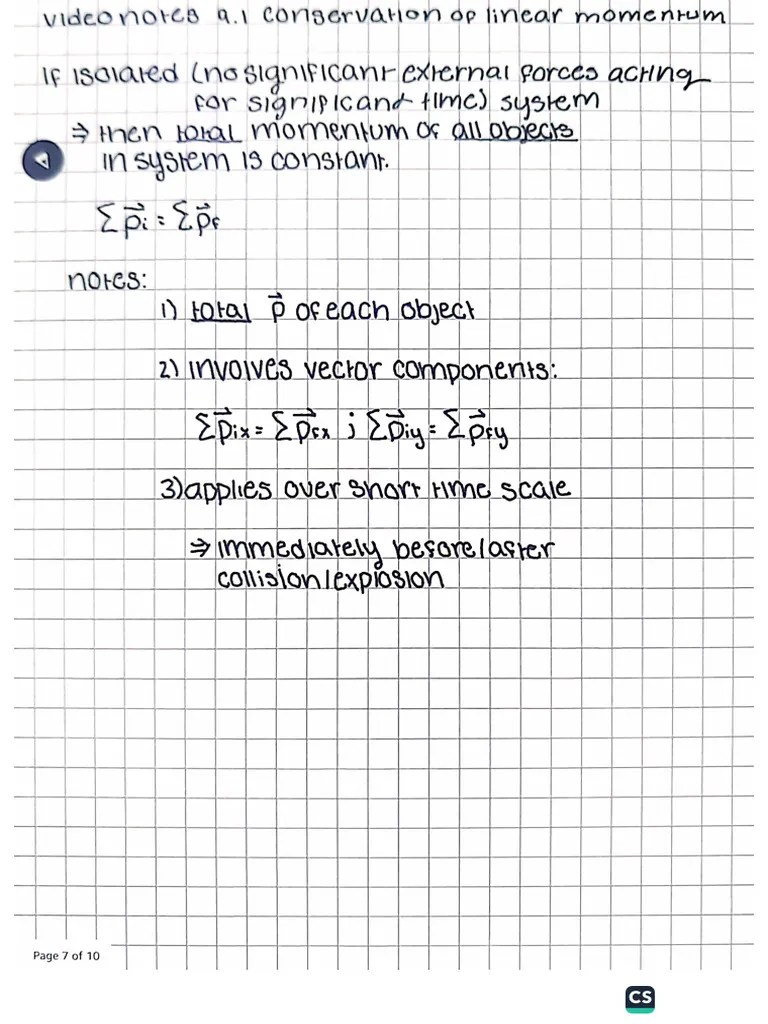 video notes 9.1 conservation of linear momentum
If isolated (no significant external forces acting
for significant time) system
⇒ then total momentum of all objects
in system is constant.
Σp⃗i = Σp⃗f
notes:
1) total p⃗ of each object
2) involves vector components:
Σp⃗ix = Σp⃗fx ; Σp⃗iy = Σp⃗fy
3) applies over short time scale
⇒ immediately before/after
collision/explosion
Page 7 of 10
CS